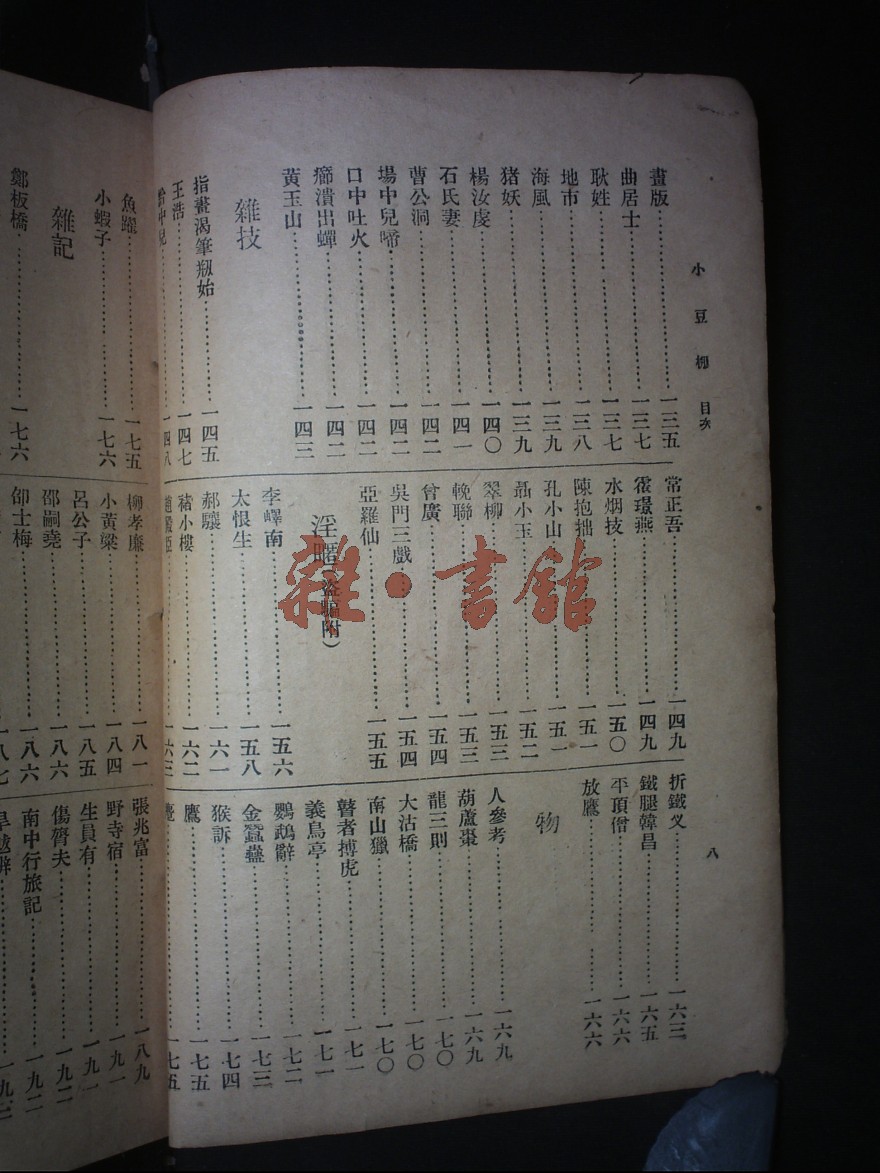 小豆棚 目次
八
畫版一三五
曲居士一三七
耿姓一三七
地市一三八
海風一三九
猪妖一三九
楊汝虔一四〇
石氏妻一四一
曹公洞一四二
場中兒啼一四二
口中吐火一四二
癤潰出蟬一四二
黃玉山一四三
雜技
指畫渴筆剏始一四五
王浩一四七
一四八
常正吾一四九
霍璟燕一四九
水烟技一五〇
陳抱拙一五一
孔小山一五一
聶小玉一五二
翠柳一五三
輓聯一五三
曾廣一五四
吳門三戲一五四
亞羅仙一五五
淫暱(盜騙附)
李嶧南一五六
太恨生一五八
郝驤一六一
豬小樓一六二
趙殿臣一六三
折鐵叉一六三
鐵腿韓昌一六五
平頂僧一六六
放鷹一六六
物
人參考一六九
葫蘆棗一六九
龍三則一七〇
大沽橋一七〇
南山獵一七〇
瞽者搏虎一七一
義鳥亭一七一
鸚鵡辭一七二
金蠶蠱一七三
猴訴一七四
鷹一七五
一七五
魚躍一七五
小蝦子一七六
雜記
鄭板橋一七六
柳孝廉一八一
小黃粱一八四
呂公子一八五
邵嗣堯一八六
郤士梅一八六
一八七
張兆富一八九
野寺宿一九一
生員有一九一
傷膂夫一九二
南中行旅記一九二